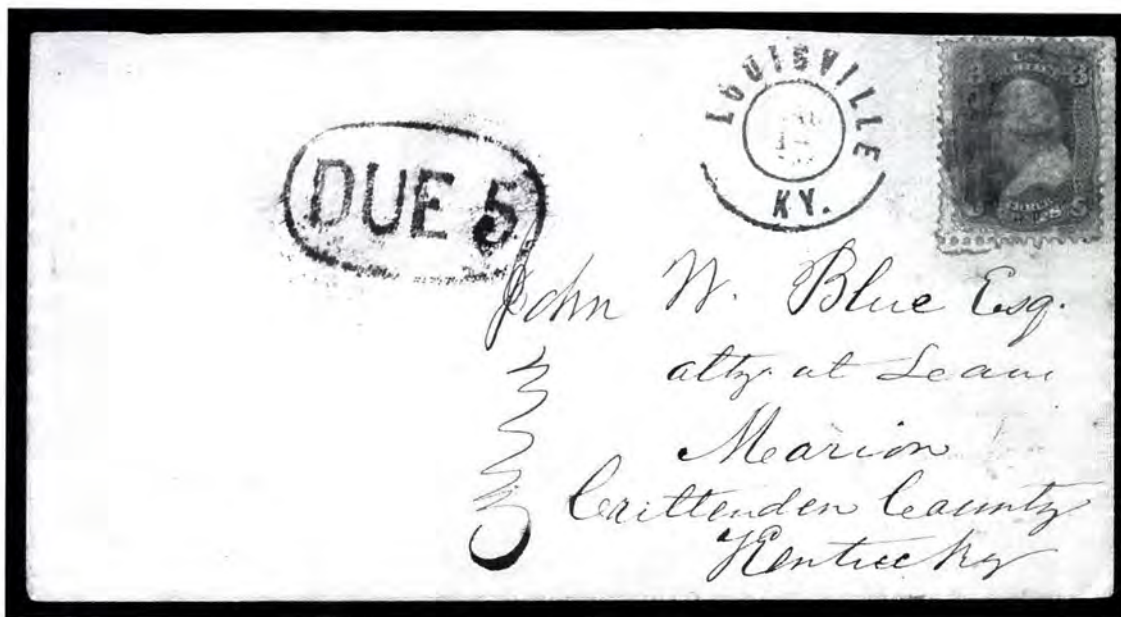 LOUISVILLE
KY.
3 3
DUE 5
John W. Blue Esq.
atty. at Leaw
Marion
Crittenden County
Kentucky